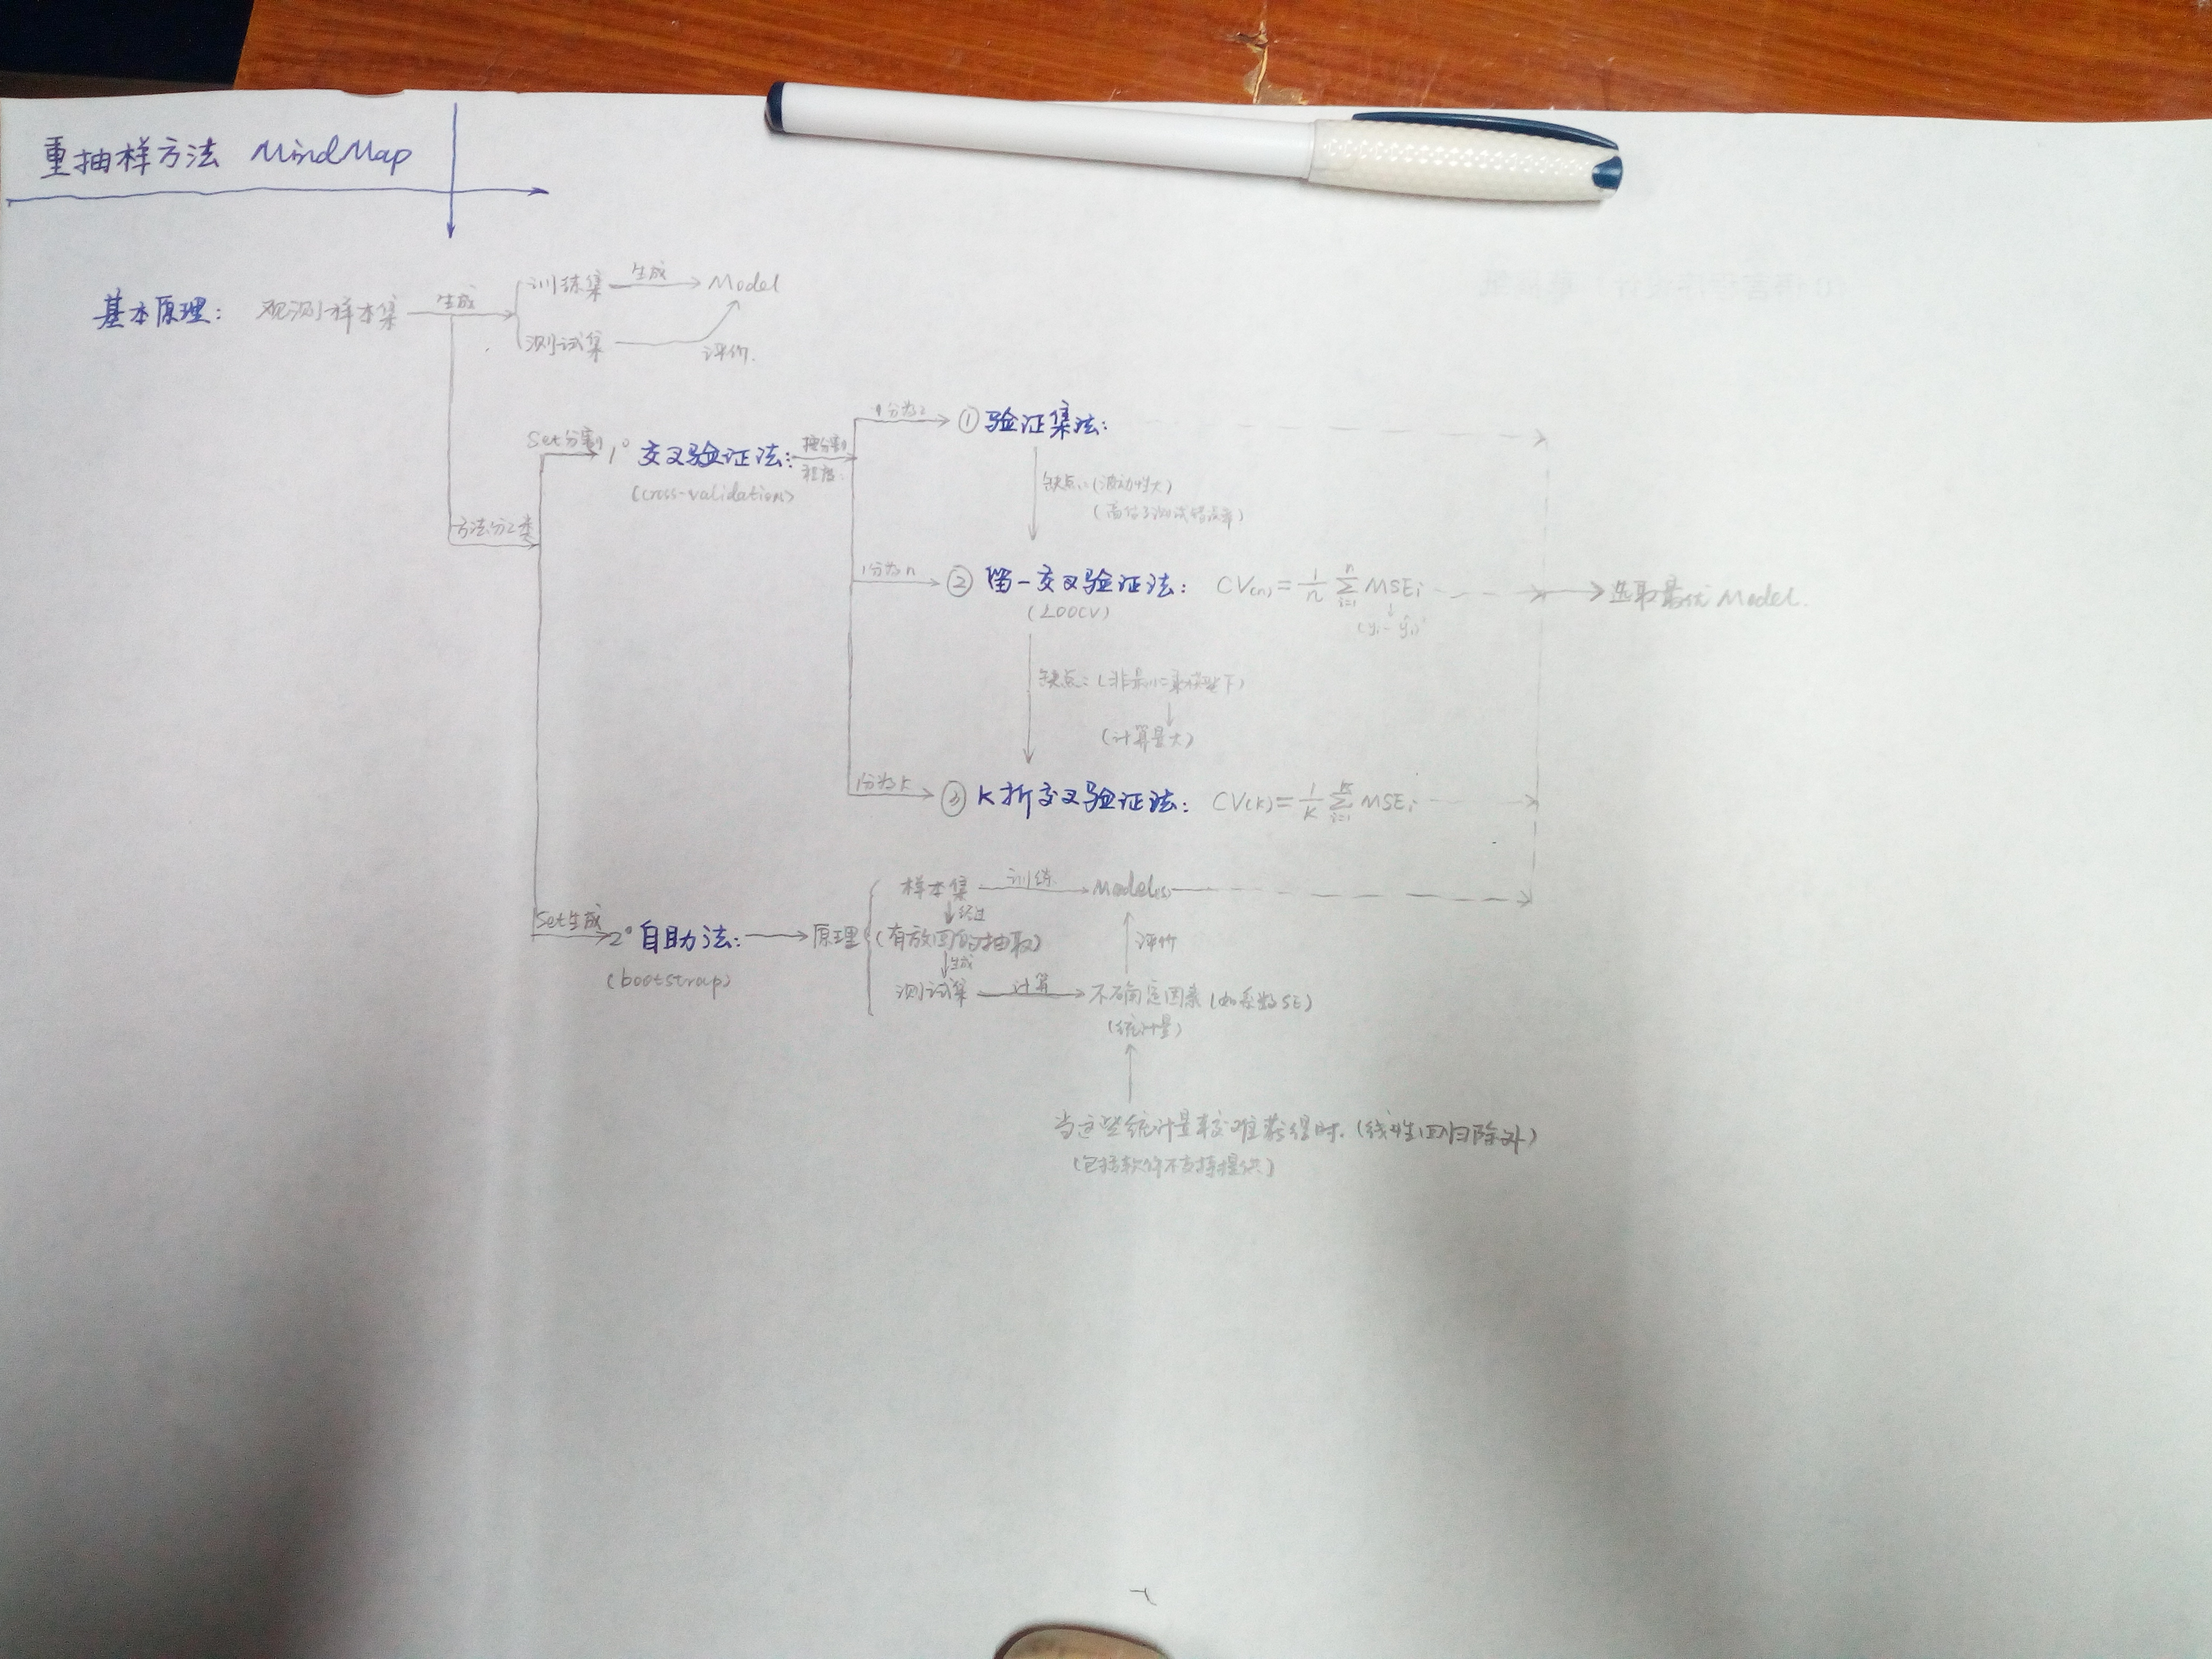 重抽样方法 MindMap
基本原理: 观测样本集 生成 训练集 生成 Model
测试集 评价.
方法分2类
Set分割 1° 交叉验证法: 按分割
程度
(cross-validation)
1分为2 ① 验证集法:
缺点:(波动性大)
(高估了测试错误率)
1分为n ② 留一交叉验证法: CV(n) = 1/n Σ i=1 n MSEi 选取最优 Model.
(LOOCV) (yi - ŷi)²
缺点:(非最小二乘模型下)
(计算量大)
1分为k ③ K折交叉验证法: CV(k) = 1/K Σ i=1 K MSEi
Set生成 2° 自助法: 原理
(bootstrap)
样本集 训练 Model(s)
经过
(有放回的抽取) 评价
生成
测试集 计算 不确定因素(如系数SE)
(统计量)
当这些统计量较难获得时.(线性回归除外)
(包括软件不支持提供)